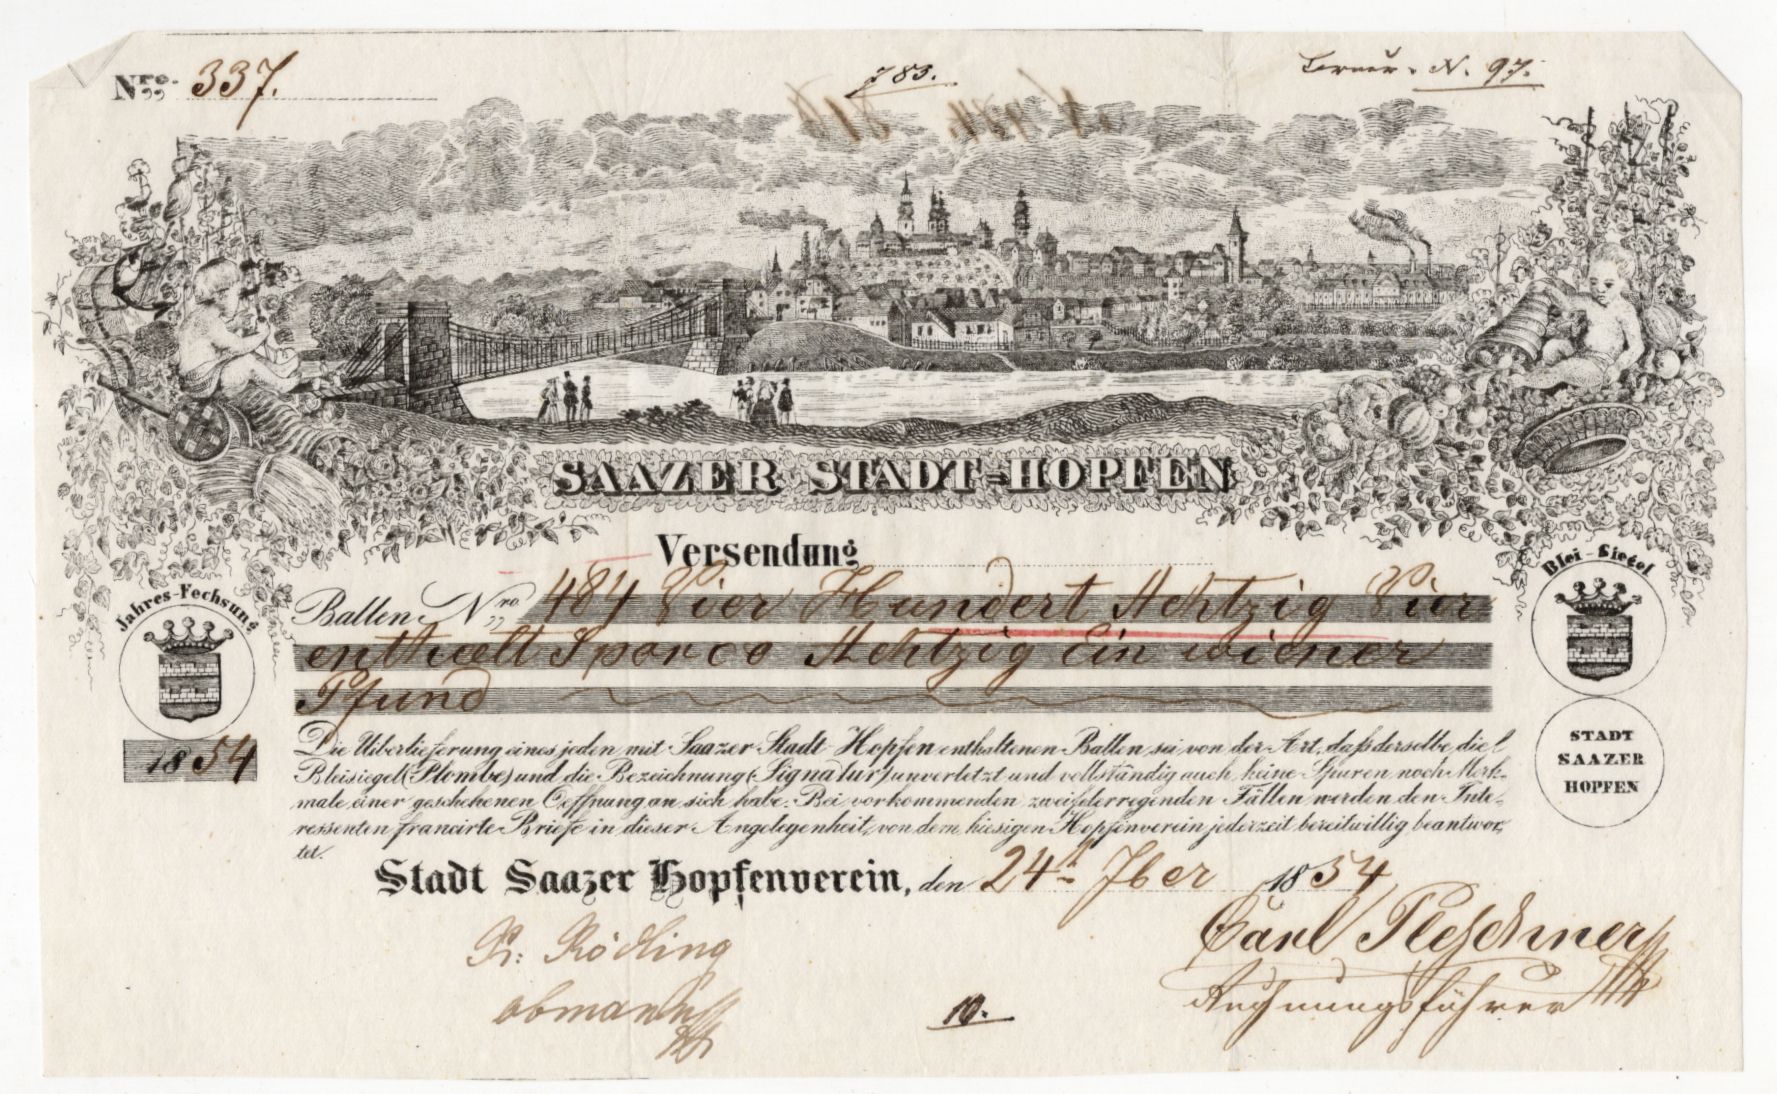 Nro. 337.
783.
N. 97.
SAAZER STADT=HOPFEN
Versendung
Jahres-Fechsung
Blei-Siegel
Ballen Nro. 484 Vier Hundert Achtzig Vier
enthaelt Sporco Achtzig Ein wiener
Pfund
1854
STADT
SAAZER
HOPFEN
Die Uiberlieferung eines jeden mit Saazer Stadt Hopfen enthaltenen Ballen sei von der Art, daſs derselbe die
Bleisiegel (Plombe) und die Bezeichnung (Signatur) unverletzt und vollständig auch keine Spuren noch Merk-
male einer geschehenen Oeffnung an sich habe. Bei vorkommenden zweifelerregenden Fällen werden den Inte-
ressenten francirte Briefe in dieser Angelegenheit, von dem hiesigen Hopfenverein jederzeit bereitwillig beantwor-
tet.
Stadt Saazer Hopfenverein, den 24t 7ber 1854
Carl Pleschner
Rechnungsführer
Obmann
10.